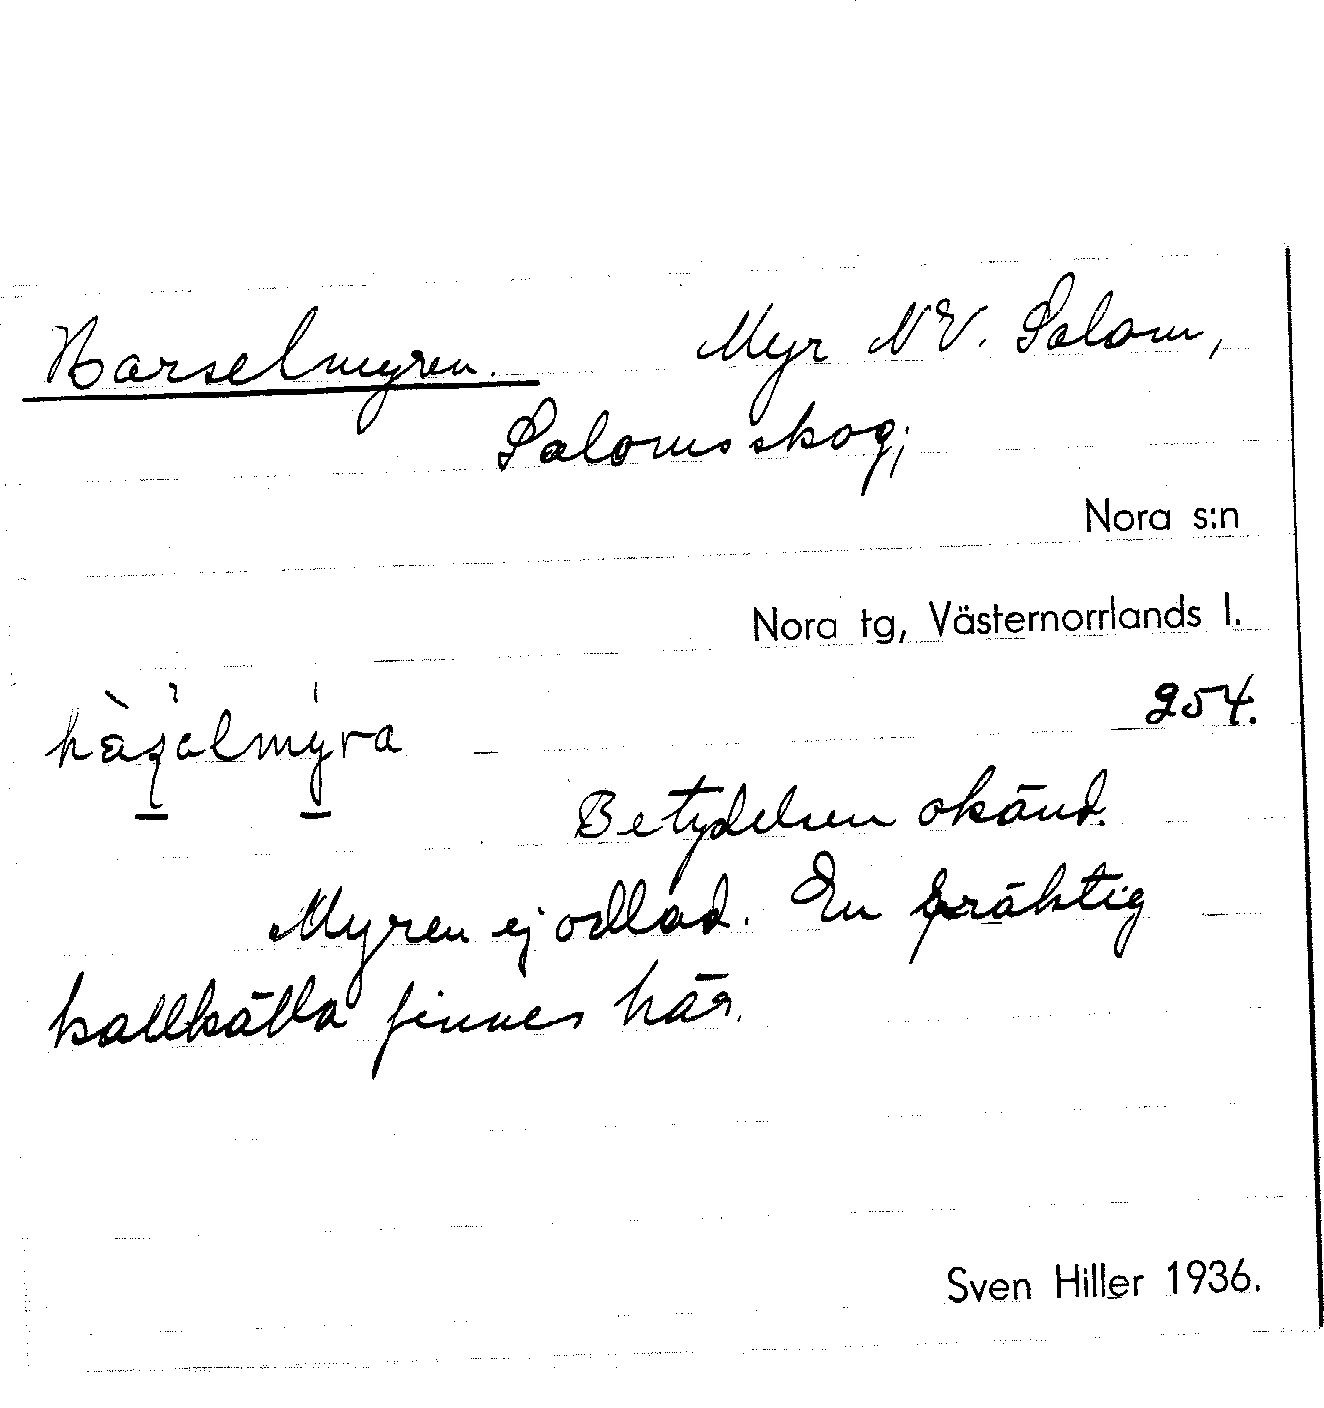 Harselmyren. Myr NV. Salom,
Salomsskog;
Nora s:n
Nora tg, Västernorrlands l.
254.
Betydelsen okänd.
Myren ej odlad. En präktig
kallkälla finnes här.
Sven Hiller 1936.